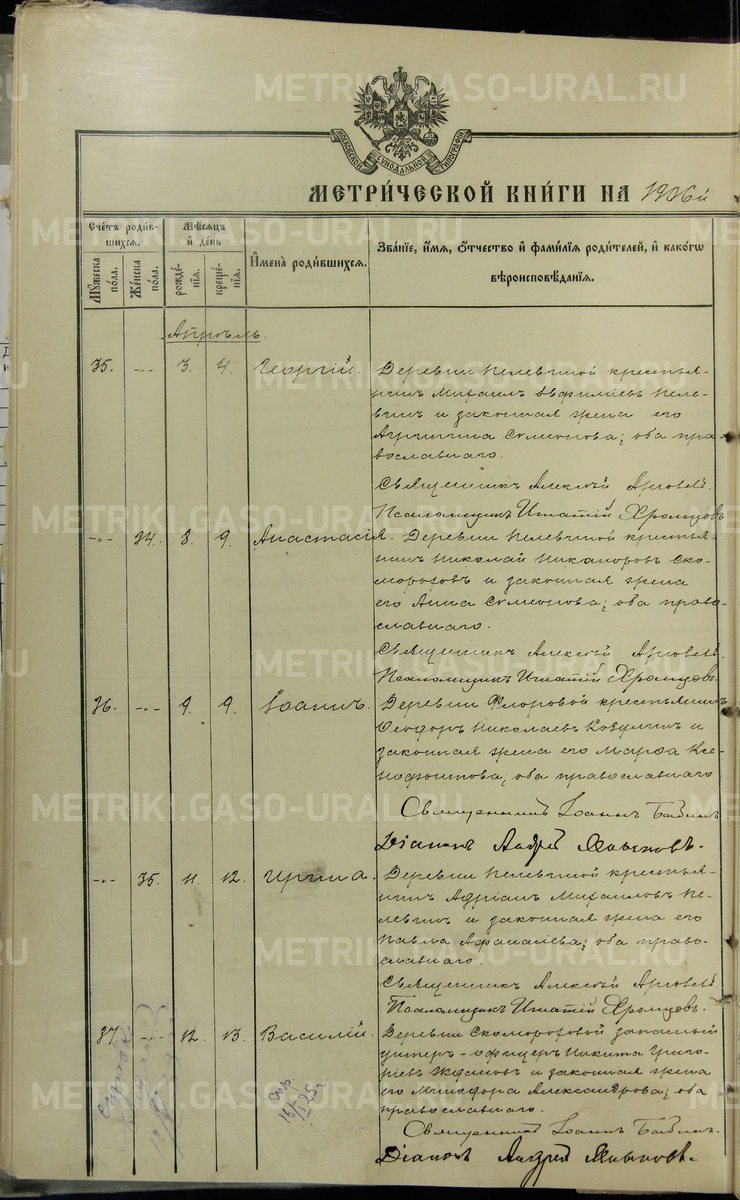 МОСКОВСКОЙ СѴНОДАЛЬНОЙ ТИПОГРАФІИ
МЕТРИ́ЧЕСКОЙ КНИ́ГИ НА 1906й
Сче́тъ роди́в-
шихся.
Му́жеска по́ла.
Же́нска по́ла.
Мѣ́сяцъ
и҆ де́нь
рожде́-
нїѧ.
креще́-
нїѧ.
И҆мена̀ роди́вшихся.
Зва́нїе, и҆́мѧ, о҆́тчество и҆ фами́лїѧ роди́телей, и҆ како́гѡ
вѣроисповѣ́данїѧ.
Апрѣль.
35. -"- 3. 4. Георгій. Деревни Пелевиной крестья-
нинъ Михаилъ Евфиміевъ Пеле-
винъ и законная жена его
Агрипина Симеонова; оба пра-
вославнаго.
Священникъ Алексѣй
Псаломщикъ Игнатій Хромцовъ
-"- 34. 8. 9. Анастасія. Деревни Пелевиной крестья-
нинъ Николай Никаноровъ Ско-
мороховъ и законная жена
его Анна Симеонова; оба право-
славнаго.
Священникъ Алексѣй
Псаломщикъ Игнатій Хромцовъ.
36. -"- 9. 9. Іоаннъ. Деревни Фроловой крестьянинъ
Ѳеодоръ Николаевъ и
законная жена его Марѳа Ксе-
нофонтова; оба православнаго
Священникъ Іоаннъ
Діаконъ Андрей
-"- 35. 11. 12. Ирина. Деревни Пелевиной крестья-
нинъ Адріанъ Михаиловъ Пе-
левинъ и законная жена его
Павла Афанасіева; оба право-
славнаго.
Священникъ Алексѣй
Псаломщикъ Игнатій Хромцовъ.
37. -"- 12. 13. Василій. Деревни Скомороховой запасный
унтеръ-офицеръ Никита Григо-
ріевъ Ждановъ и законная жена
его Минодора Александрова; оба
православнаго.
Священникъ Іоаннъ
Діаконъ Андрей
METRIKI.GASO-URAL.RU